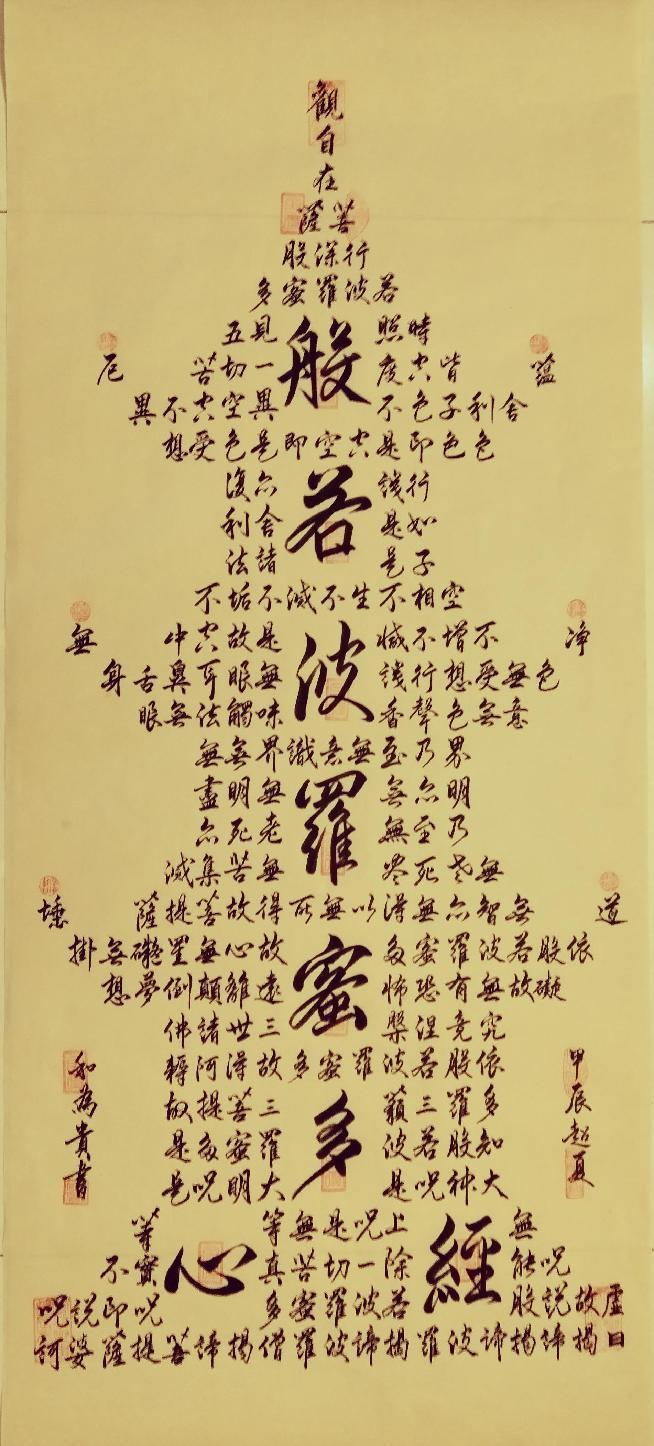 觀
自
在
菩薩
行深般
若波羅蜜多
時照見五
蘊皆空度一切苦厄
舍利子色不異空空不異
色色即是空空即是色受想
行識亦復
如是舍利
子是諸法
空相不生不滅不垢不
淨不增不減是故空中無
色無受想行識無眼耳鼻舌身
意無色聲香味觸法無眼
界乃至無意識界無無
明亦無無明盡
乃至無老死亦
無老死盡無苦集滅
道無智亦無得以無所得故菩提薩埵
依般若波羅蜜多故心無罣礙無掛
礙故無有恐怖遠離顛倒夢想
究竟涅槃三世諸佛
依般若波羅蜜多故得阿耨
多羅三藐三菩提故
知般若波羅蜜多是
大神呪是大明呪是
無上呪是無等等
呪能除一切苦真實不
虛故說般若波羅蜜多呪即說呪
曰揭諦揭諦波羅揭諦波羅僧揭諦菩提薩婆訶
般若波羅蜜多心經
甲辰超夏
和為貴書